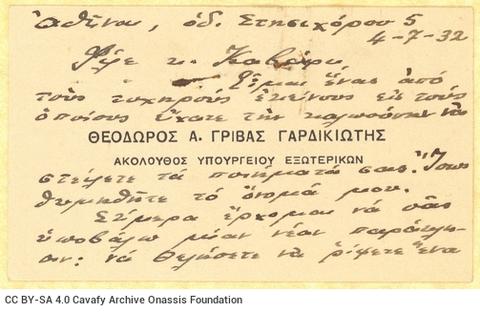 Ἀθῆναι, ὁδ. Στησιχόρου 5
4-7-32
Φίλε κ. Καβάφη,
Εἶμαι ἕνας ἀπό
τούς τυχηρούς ἐκείνους εἰς τούς
ὁποίους εἴχατε τήν καλωσύνην νά
ΘΕΟΔΩΡΟΣ Α. ΓΡΙΒΑΣ ΓΑΡΔΙΚΙΩΤΗΣ
ΑΚΟΛΟΥΘΟΣ ΥΠΟΥΡΓΕΙΟΥ ΕΞΩΤΕΡΙΚΩΝ
στείλετε τά ποιήματά σας. Ἴσως
θυμηθῆτε τό ὄνομά μου.
Σήμερα ἔρχομαι νά σᾶς
ὑποβάλω μίαν νέαν παράκλη-
σιν: νά θελήσετε νά ρίψετε ἕνα
CC BY-SA 4.0 Cavafy Archive Onassis Foundation